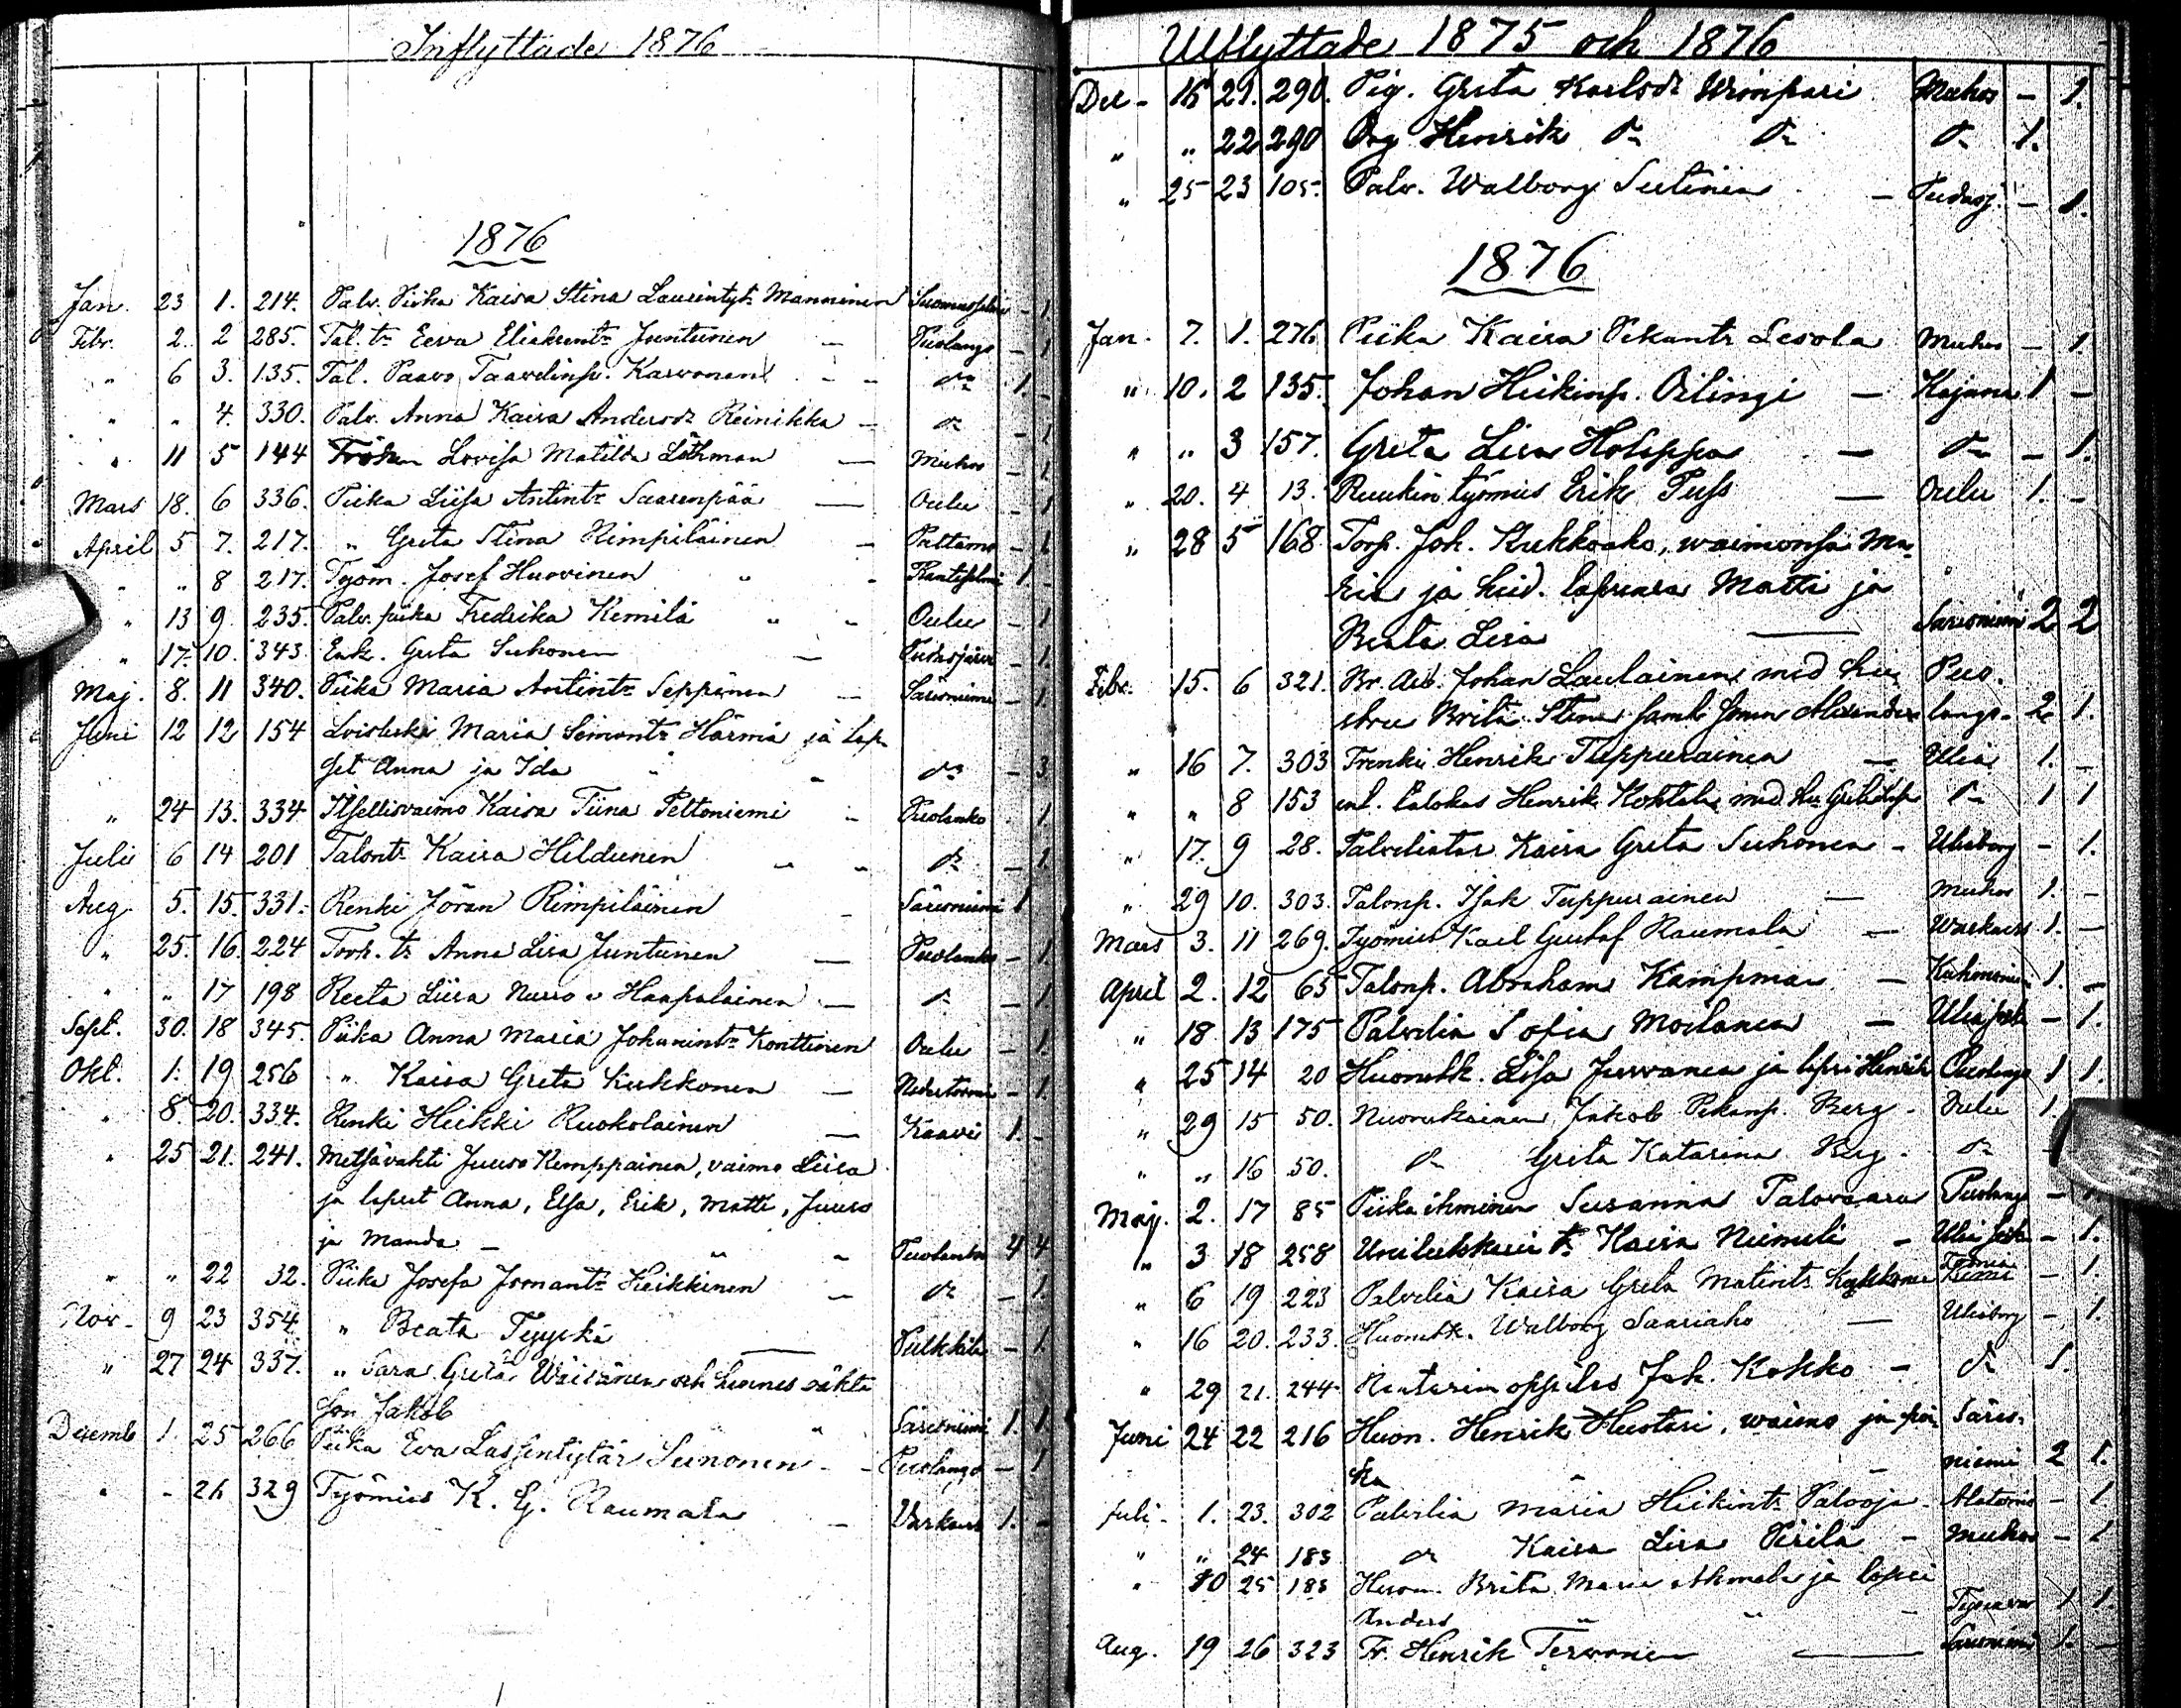 Inflyttade 1876
1876
Jan. 23 1. 214. Palv. Piika Kaisa Stina Laurintyt. Manninen - 1.
Febr. 2. 2 285. Tal. tr Eeva Eliaksentr Juntunen — Puolango - 1
" 6 3. 135. Tal. Paavo Taavelinp. Karvonen - - do 1. -
" " 4. 330. Palv. Anna Kaisa Andersdr Reinikka — do - 1
" 11 5 144 Fröken Lovisa Matilda Löthman — Muhos - 1
Mars 18. 6 336. Piika Liisa Antintr Saarenpää — Oulu - 1
April 5 7. 217. " Greta Stina Rimpiläinen — Paltamo - 1
" " 8 217. Työm. Josef Huovinen " - 1 -
" 13 9. 235. Palv. piika Fredrika Kemilä " - Oulu - 1
" 17. 10. 343 Enk. Greta Suhonen — Pudasjärvi - 1.
Maj. 8. 11 340. Piika Maria Antintr Seppänen — Säresniemi - 1
Juni 12 12 154 Loisleski Maria Simontr Härmä ja lap-
set Anna ja Ida " - do - 3
" 24 13. 334 Itsellisvaimo Kaisa Tiina Peltoniemi - Puolanko - 1.
Juli 6 14 201 Talontr Kaisa Hildunen - - do - 1
Aug. 5. 15. 331. Renki Jöran Rimpiläinen - Säresniemi 1
" 25. 16. 224 Torp. tr Anna Lisa Juntunen — Puolanko - 1.
" " 17 198 Reeta Liisa Haapalainen — do - 1
Sept. 30. 18 345. Piika Anna Maria Johanintr Konttinen Oulu - 1.
Okt. 1. 19 256 " Kaisa Greta Kukkonen — - 1.
" 8. 20. 334. Renki Heikki Ruokolainen — Kaavi 1. -
" 25 21. 241. Metsävahti Juuso Kemppainen, vaimo Liisa
ja lapset Anna, Elsa, Erik, Matti, Juuso
ja Manda — " - Puolanko 4 4
" " 22 32. Piika Josefa Heikkinen - do - 1.
Nov. 9 23 354 " Beata Tyyski — Pulkkila - 1.
" 27 24 337. " Sara Greta Wäisänen och hennes oäkta
son Jakob " Säresniemi 1. 1.
Decemb 1. 25 266 Piika Eva Lassentytär Seinonen - - Puolango - 1
" - 26 329 Työmies K. G. Raumala - Varkaus 1. -
Utflyttade 1875 och 1876
Dec - 15 21. 290. Pig. Greta Karlsdr Wimpari Muhos - 1.
" " 22 290 Drg Henrik do do do 1.
" 25 23 105. Palv. Walborg Sutinen - Pudasj. - 1.
1876
Jan. 7. 1. 276. Piika Kaisa Pekantr Lesola Muhos - 1.
" 10. 2 135. Johan Heikinp. Oilingi — Kajana 1 -
" " 3 157. Greta Lisa Holappa — do - 1.
" 20. 4 13. Ruukin työmies Erik Puss — Oulu 1. -
" 28 5 168 Torp. Joh. Kukkoaho, waimonsa Ma-
ria ja heid. lapsensa Matti ja
Beata Lisa — Säresniemi 2 2
Febr. 15. 6 321. Br. Arb. Johan Laulainen med hu- Puo-
stru Brita Stina samt sonen Alexander lango 2 1.
" 16 7. 303 Frenki Henrik Tuppurainen — Uleå 1. -
" " 8 153 Henrik Kohtala med hu do 1 1
" 17. 9 28. Palveliatar Kaisa Greta Suhonen - Uleåborg - 1.
" 29 10. 303. Talonp. Isak Tuppurainen — Muhos 1. -
Mars 3. 11 269. Työmies Karl Gustaf Raumala — Warkaus 1. -
April 2. 12 65 Talonp. Abraham Kampman — Kuhmoniemi 1. -
" 18 13 175 Palvelia Sofia Moilanen — Uleå sock - 1.
" 25 14 20 Huonekk. Lisa Juvvanen ja lapsi Henrik Puolango 1 1.
" 29 15 50. Nuorukainen Jakob Pekanp. Berg - Oulu 1.
" " 16 50. do Greta Katarina Berg - do -
Maj. 2. 17 85 Piika ihminen Susanna Palovaara Puolango -
" 3 18 258 tr Kaisa Niemelä - Uleå sock - 1.
" 6 19 223 Palvelia Kaisa Greta Matintr Kukkonen Kemi - 1.
" 16 20. 233. Huonekk. Walborg Saariaho — Uleåborg - 1.
" 29 21. 244. Nikkarin oppilas Jak. Kokko - do 1.
Juni 24 22 216 Huon. Henrik Huotari, waimo ja poi- Säres-
ka " - niemi 2 1.
Juli - 1. 23. 302 Palvelia Maria Heikintr Palooja - Alatornio - 1
" " 24 183 do Kaisa Lisa Pirilä - Muhos - 1
" 10 25 183 Huon. Brita Maria Ahmala ja lapsi
Anders " " - 1 1.
Aug. 19 26 323 Tr. Henrik Tervonen — Säresniemi 1. -